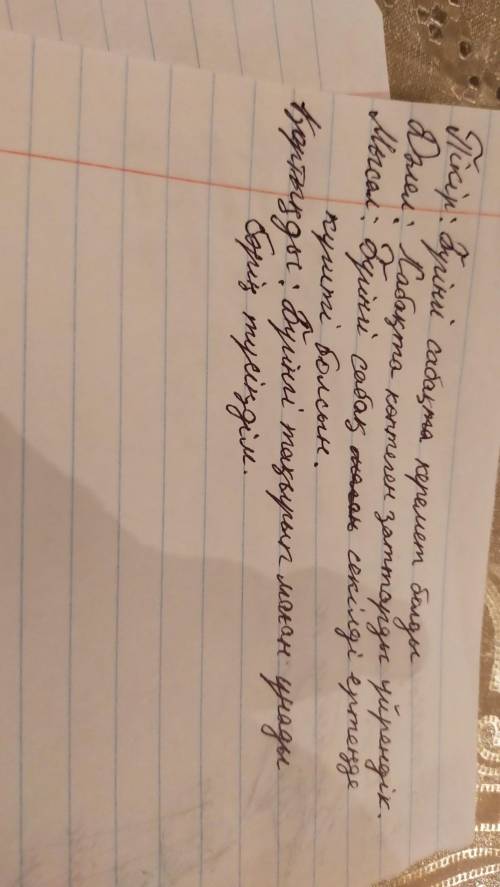 Пікір: Бүгінгі сабақта керемет болды
Дәлел: Сабақта көптеген заттарды үйрендік.
Мысал: Бүгінгі сабақ секілді ертеңде
күшті болсын.
Қортынды: Бүгінгі тақырып маған ұнады
бәріг түсіндім.